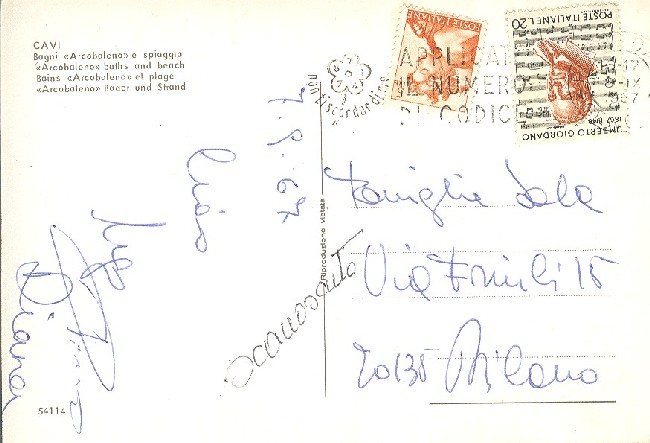 CAVI
Bagni «Arcobaleno» e spiaggio
«Arcobaleno» baths and beach
Bains «Arcobaleno» et plage
«Arcobaleno» Bader und Strand
7.9.67
Ciao
Diana
54114
Riproduzione vietata
non ti scordar di me
APPLICA
IL NUMERO
DI CODICE
POSTE ITALIANE
POSTE ITALIANE L.20
UMBERTO GIORDANO
Famiglia Sala
Via Friuli 15
20135 Milano